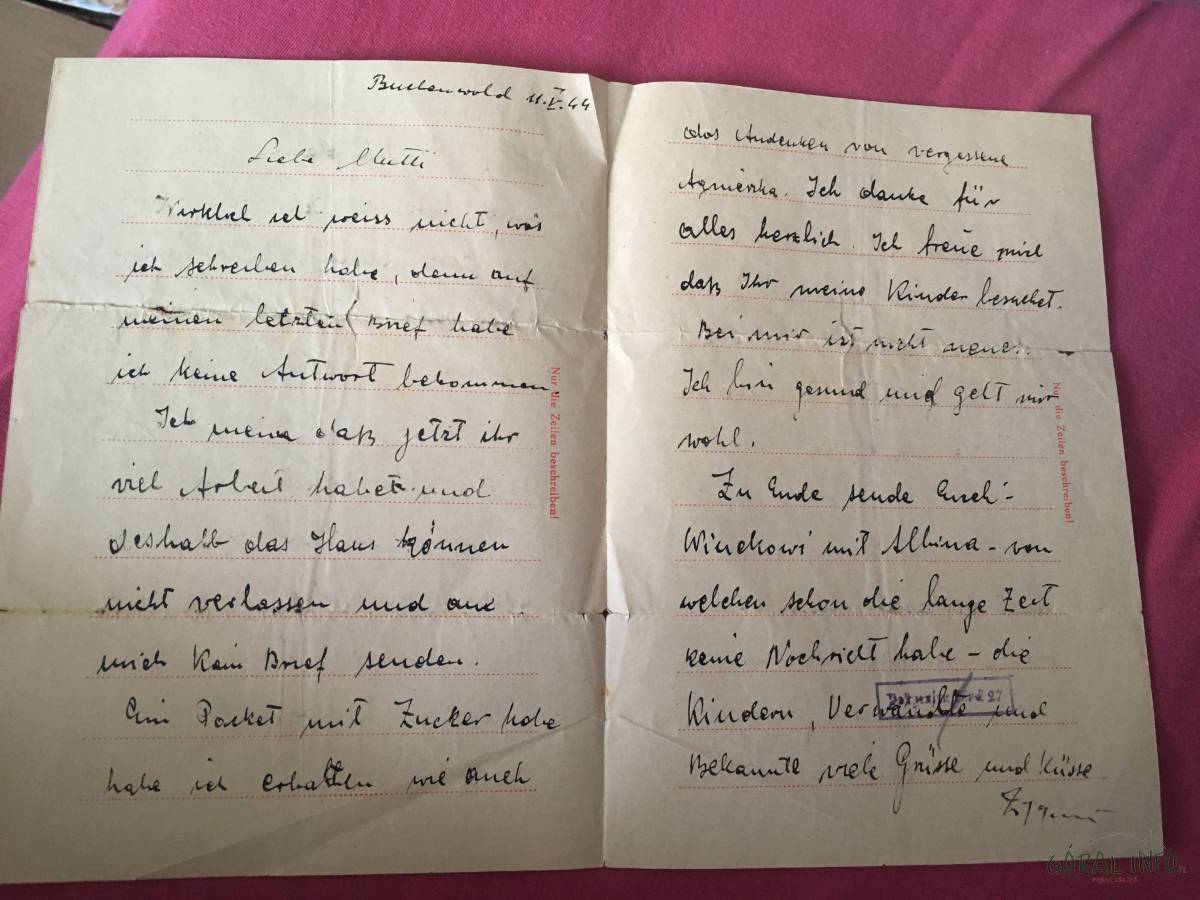 Buchenwald 11.V.44
Liebe Mutti
Wirklich ich weiss nicht, was
ich schreiben habe, denn auf
meinen letzten Brief habe
ich keine Antwort bekommen.
Ich meine daß jetzt ihr
viel Arbeit habet und
deshalb das Haus können
nicht verlassen und auf
mich kein Brief senden.
Ein Packet mit Zucker habe
habe ich erhalten wie auch
Nur die Zeilen beschreiben!
das Andenken von vergessene
Agnieszka. Ich danke für
alles herzlich. Ich freue mich
daß Ihr meine Kinder besuchet.
Bei mir ist nicht neue.
Ich bin gesund und geht mir
wohl.
Zu Ende sende Euch -
Winckowi mit Albina - von
welchen schon die lange Zeit
keine Nachricht habe - die
Kindern, Verwandte und
Bekannte viele Grüsse und Küsse
Nur die Zeilen beschreiben!
27
GÓRAL INFO